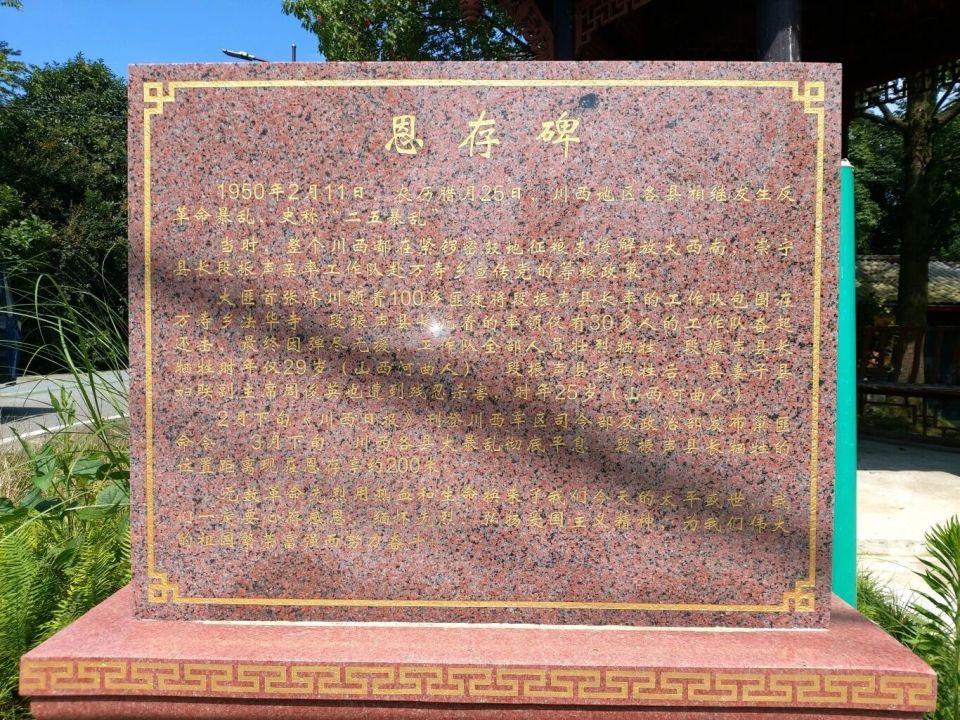 恩存碑
1950年2月11日，农历腊月25日，川西地区各县相继发生反
革命暴乱、史称“二五暴乱”
当时，整个川西都在紧锣密鼓地征粮支援解放大西南，崇宁
县长段振声亲率工作队赴万寿乡宣传党的筹粮政策
大匪首张济川领着100多匪徒将段振声县长率的工作队包围在
万寿乡法华寺，段振声县长沉着的率领仅有30多人的工作队奋起
还击，最终因弹尽无援，工作队全部人员壮烈牺牲，段振声县长
牺牲时年仅29岁（山西河曲人），段振声县长牺牲后，其妻子县
妇联副主席周俊英也遭到残忍杀害，时年25岁（山西河曲人）
2月下旬《川西日报》刊登川西军区司令部及政治部发布剿匪
命令，3月下旬，川西各县大暴乱彻底平息，段振声县长牺牲的
位置距离现在恩存亭约200米
无数革命先烈用热血和生命换来了我们今天的太平盛世，我
们一定要心存感恩，缅怀先烈，弘扬爱国主义精神，为我们伟大
的祖国繁荣富强而努力奋斗